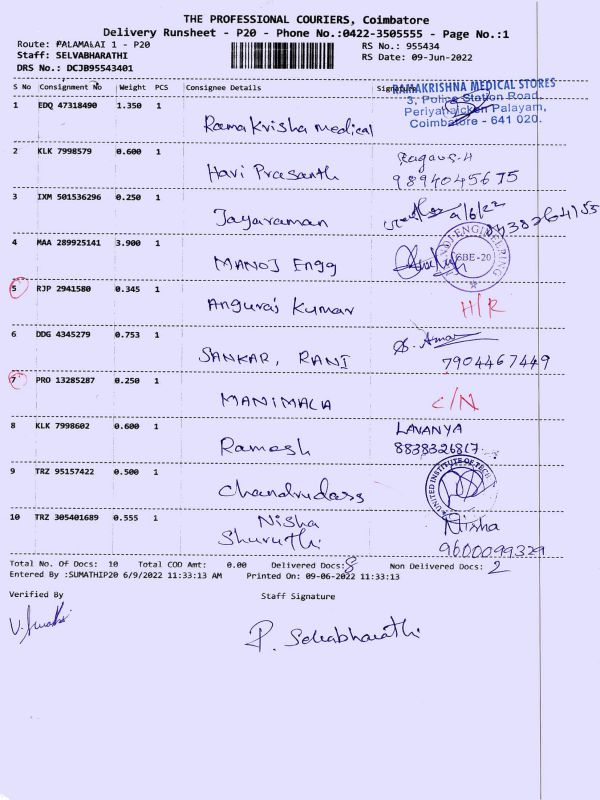 THE PROFESSIONAL COURIERS, Coimbatore
Delivery Runsheet - P20 - Phone No.:0422-3505555 - Page No.:1
Route: PALAMALAI 1 - P20
RS No.: 955434
Staff: SELVABHARATHI
RS Date: 09-Jun-2022
DRS No.: DCJB95543401
S No Consignment No Weight PCS Consignee Details
RAMAKRISHNA MEDICAL STORES
3, Police Station Road,
Periyanaicken Palayam,
Coimbatore - 641 020.
1 EDQ 47318490 1.350 1
Rama Krisha medical
2 KLK 7998579 0.600 1
Hari Prasanth
9894045675
3 IXM 501536296 0.250 1
Jayaraman
9/6/22
4 MAA 289925141 3.900 1
MANOJ Engg
SBE-20
5 RJP 2941580 0.345 1
Anguraj Kumar H/R
6 DDG 4345279 0.753 1
SANKAR, RANI
7904467449
7 PRO 13285287 0.250 1
MANIMALA C/N
8 KLK 7998602 0.600 1
LAVANYA
Ramesh 8838326817
9 TRZ 95157422 0.500 1
Chandrudass
UNITED INSTITUTE OF TECH
10 TRZ 305401689 0.555 1
Nisha
Shuruthi
Nisha
9600099329
Total No. Of Docs: 10 Total COD Amt: 0.00 Delivered Docs: 8 Non Delivered Docs: 2
Entered By :SUMATHIP20 6/9/2022 11:33:13 AM Printed On: 09-06-2022 11:33:13
Verified By Staff Signature
P. Selvabharathi